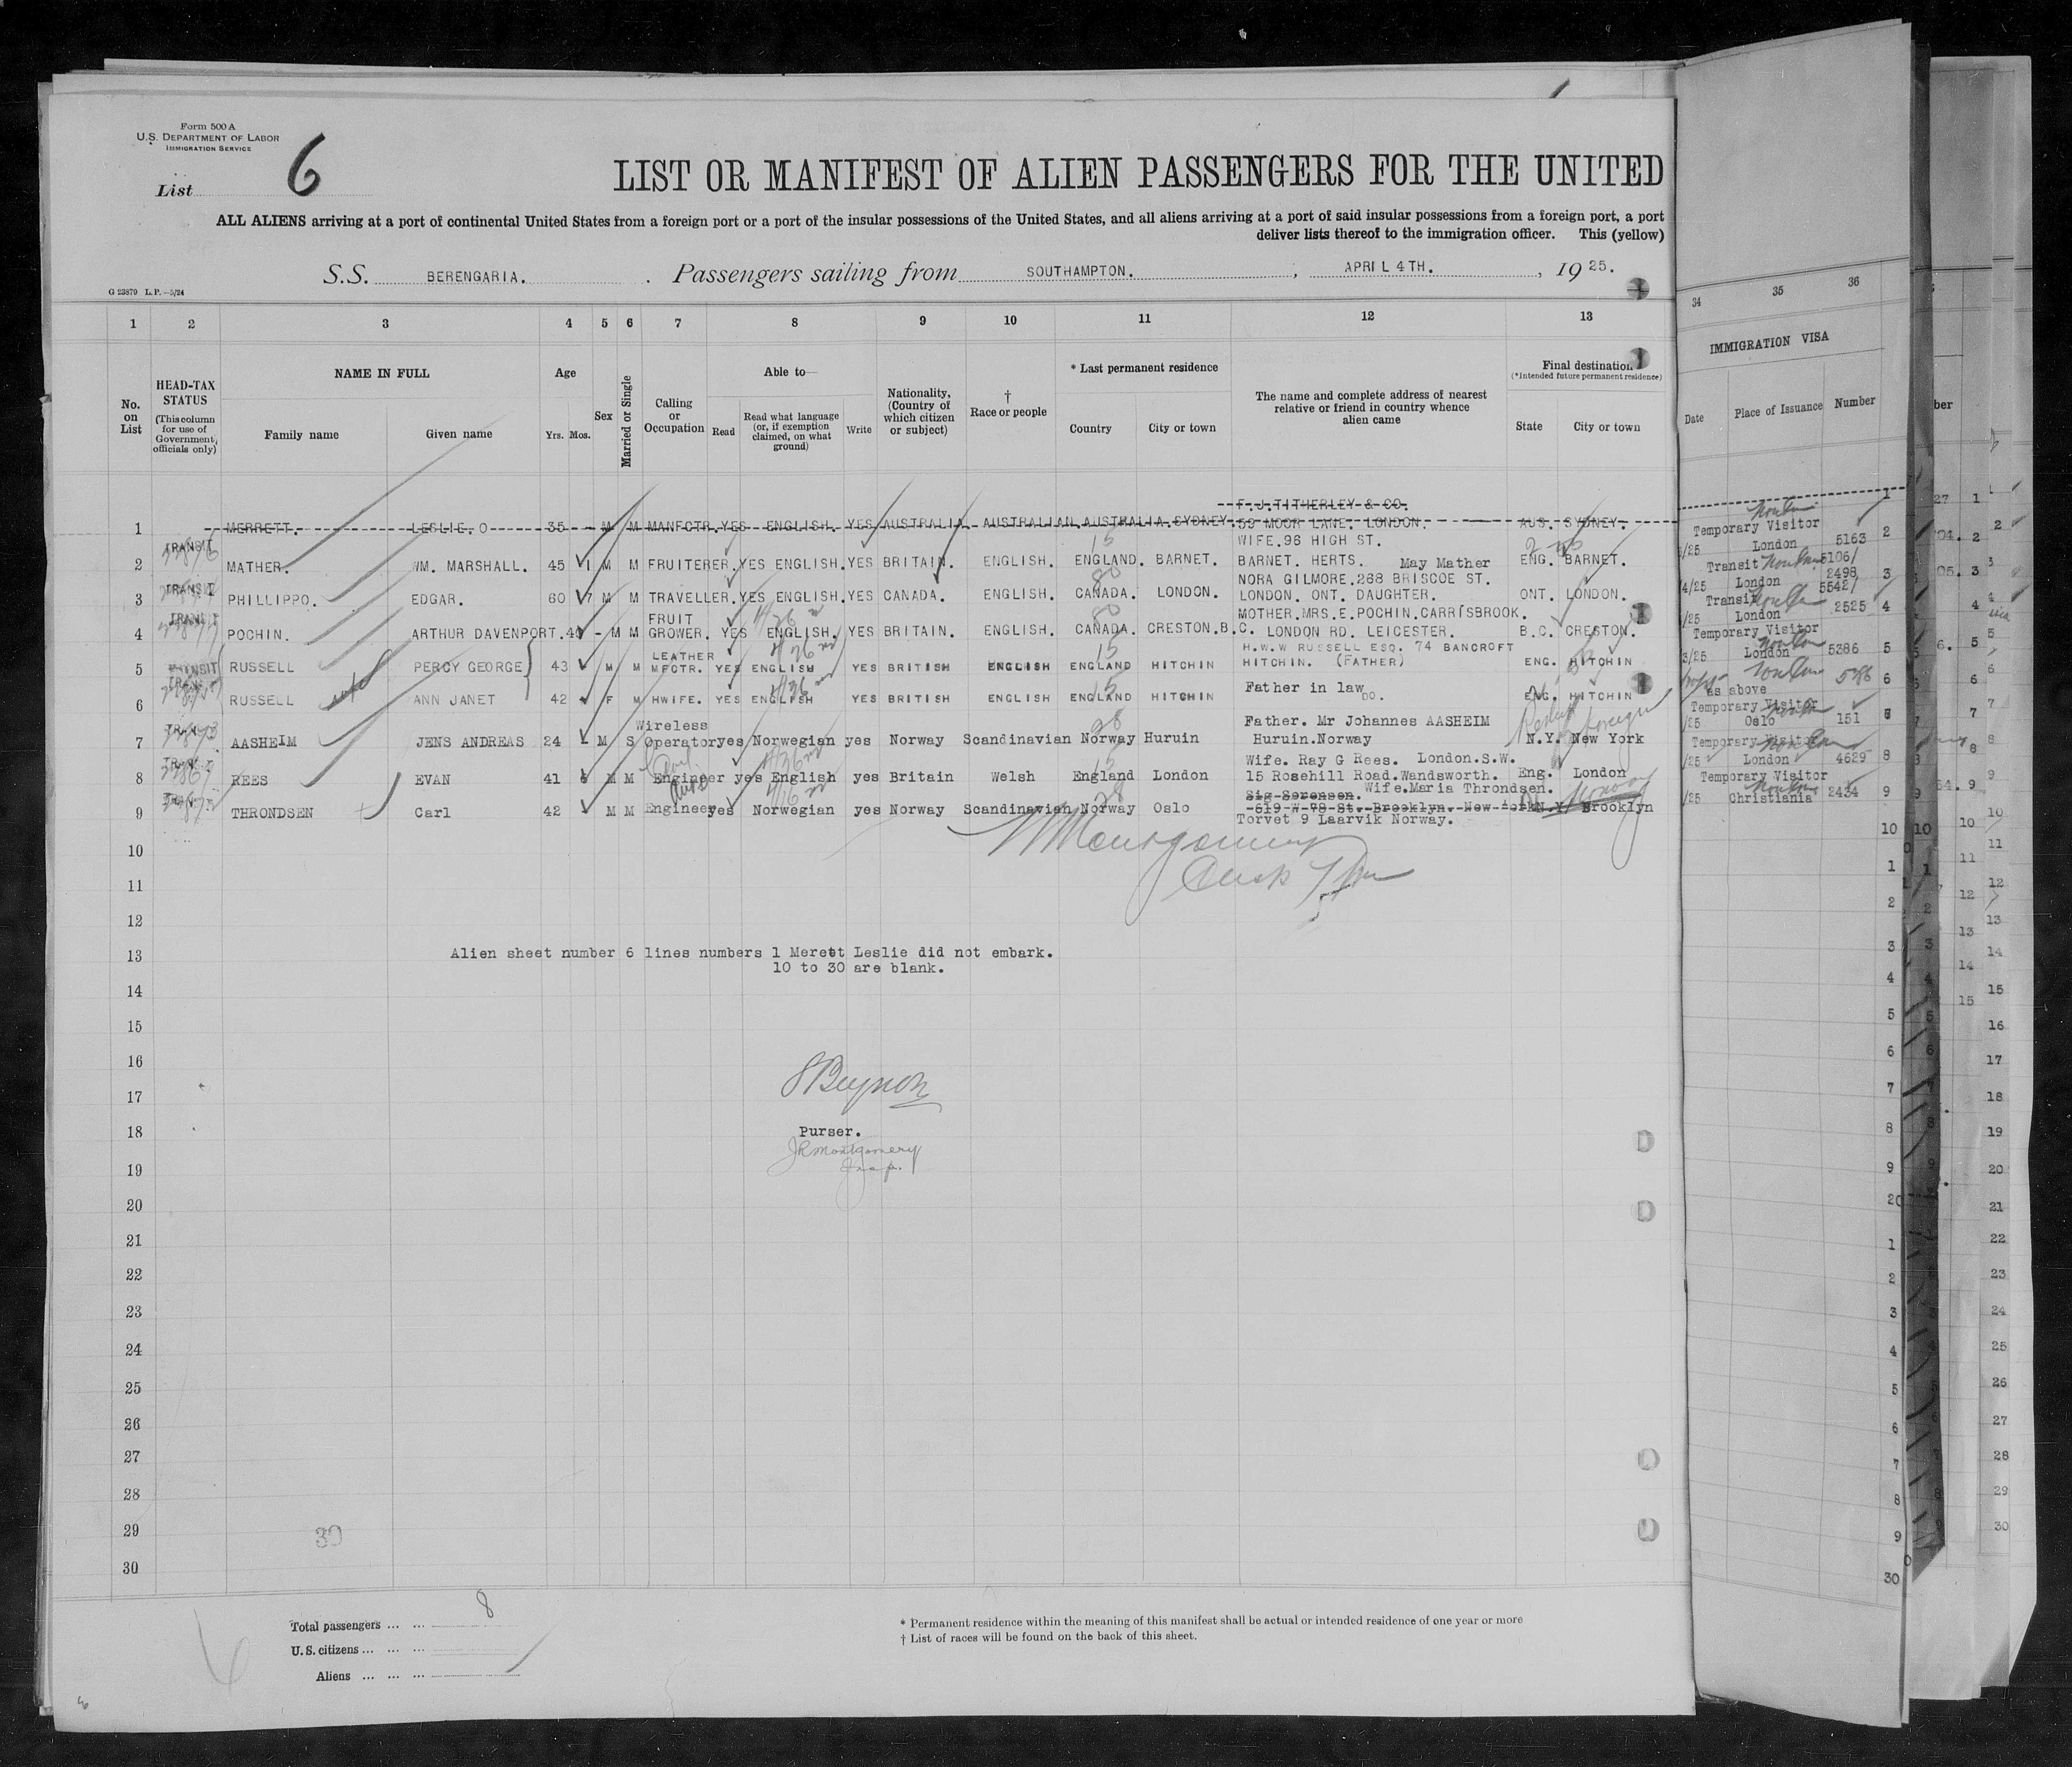 Form 500 A
U.S. DEPARTMENT OF LABOR
IMMIGRATION SERVICE
List 6
LIST OR MANIFEST OF ALIEN PASSENGERS FOR THE UNITED
ALL ALIENS arriving at a port of continental United States from a foreign port or a port of the insular possessions of the United States, and all aliens arriving at a port of said insular possessions from a foreign port, a port
deliver lists thereof to the immigration officer. This (yellow)
S.S. BERENGARIA. Passengers sailing from SOUTHAMPTON. , APRIL 4TH. , 1925.
G 23879 L.P.—5/24
1 2 3 4 5 6 7 8 9 10 11 12 13
No. on List
HEAD-TAX STATUS
(This column for use of Government officials only)
NAME IN FULL
Family name Given name
Age
Yrs. Mos.
Sex
Married or Single
Calling or Occupation
Able to—
Read
Read what language (or, if exemption claimed, on what ground)
Write
Nationality, (Country of which citizen or subject)
† Race or people
* Last permanent residence
Country City or town
The name and complete address of nearest relative or friend in country whence alien came
Final destination
(*Intended future permanent residence)
State City or town
34 35 36
IMMIGRATION VISA
Date Place of Issuance Number
F.J.TITHERLEY & CO.
1 MERRETT. LESLIE. O 35 - M M MANFCTR. YES ENGLISH. YES AUSTRALIA AUSTRALIAN AUSTRALIA SYDNEY. 59 MOOR LANE. LONDON. AUS. SYDNEY.
TRANSIT WIFE.96 HIGH ST.
2 MATHER. WM. MARSHALL. 45 1 M M FRUITERER. YES ENGLISH. YES BRITAIN. ENGLISH. ENGLAND. BARNET. BARNET. HERTS. May Mather ENG. BARNET.
TRANSIT NORA GILMORE.268 BRISCOE ST.
3 PHILLIPPO. EDGAR. 60 7 M M TRAVELLER. YES ENGLISH. YES CANADA. ENGLISH. CANADA. LONDON. LONDON. ONT. DAUGHTER. ONT. LONDON.
TRANSIT FRUIT MOTHER.MRS.E.POCHIN.CARRISBROOK.
4 POCHIN. ARTHUR DAVENPORT. - M M GROWER. YES ENGLISH. YES BRITAIN. ENGLISH. CANADA. CRESTON.B.C. LONDON RD. LEICESTER. B.C. CRESTON.
LEATHER H.W.W RUSSELL ESQ. 74 BANCROFT
5 TRANSIT RUSSELL PERCY GEORGE 43 M M MFCTR. YES ENGLISH YES BRITISH ENGLISH ENGLAND HITCHIN HITCHIN. (FATHER) ENG. HITCHIN
6 RUSSELL ANN JANET 42 F M HWIFE. YES ENGLISH YES BRITISH ENGLISH ENGLAND HITCHIN Father in law DO. ENG. HITCHIN
Wireless Father. Mr Johannes AASHEIM
7 AASHEIM JENS ANDREAS 24 - M S Operator yes Norwegian yes Norway Scandinavian Norway Huruin Huruin.Norway N.Y. New York
Wife. Ray G Rees. London.S.W.
8 REES EVAN 41 6 M M Engineer yes English yes Britain Welsh England London 15 Rosehill Road.Wandsworth. Eng. London
Sig Sorensen. Wife.Maria Throndsen.
9 THRONDSEN Carl 42 M M Engineer yes Norwegian yes Norway Scandinavian Norway Oslo 619 W 78 St. Brooklyn. New York N.Y. Brooklyn
Torvet 9 Laarvik Norway.
Temporary Visitor
London 5163
Transit 5106
London 2498
Transit 5542
London 2525
Temporary Visitor
London 5386
as above
Temporary Visitor
Oslo 151
Temporary Visitor
London 4629
Temporary Visitor
Christiania 2434
10
11
12
13
Alien sheet number 6 lines numbers 1 Merett Leslie did not embark.
10 to 30 are blank.
14
15
16
17
18
Purser.
JR Montgomery
Insp.
19
20
21
22
23
24
25
26
27
28
29
30
30
Total passengers ... ... 8
U.S. citizens ... ... ...
Aliens ... ... ...
* Permanent residence within the meaning of this manifest shall be actual or intended residence of one year or more
† List of races will be found on the back of this sheet.